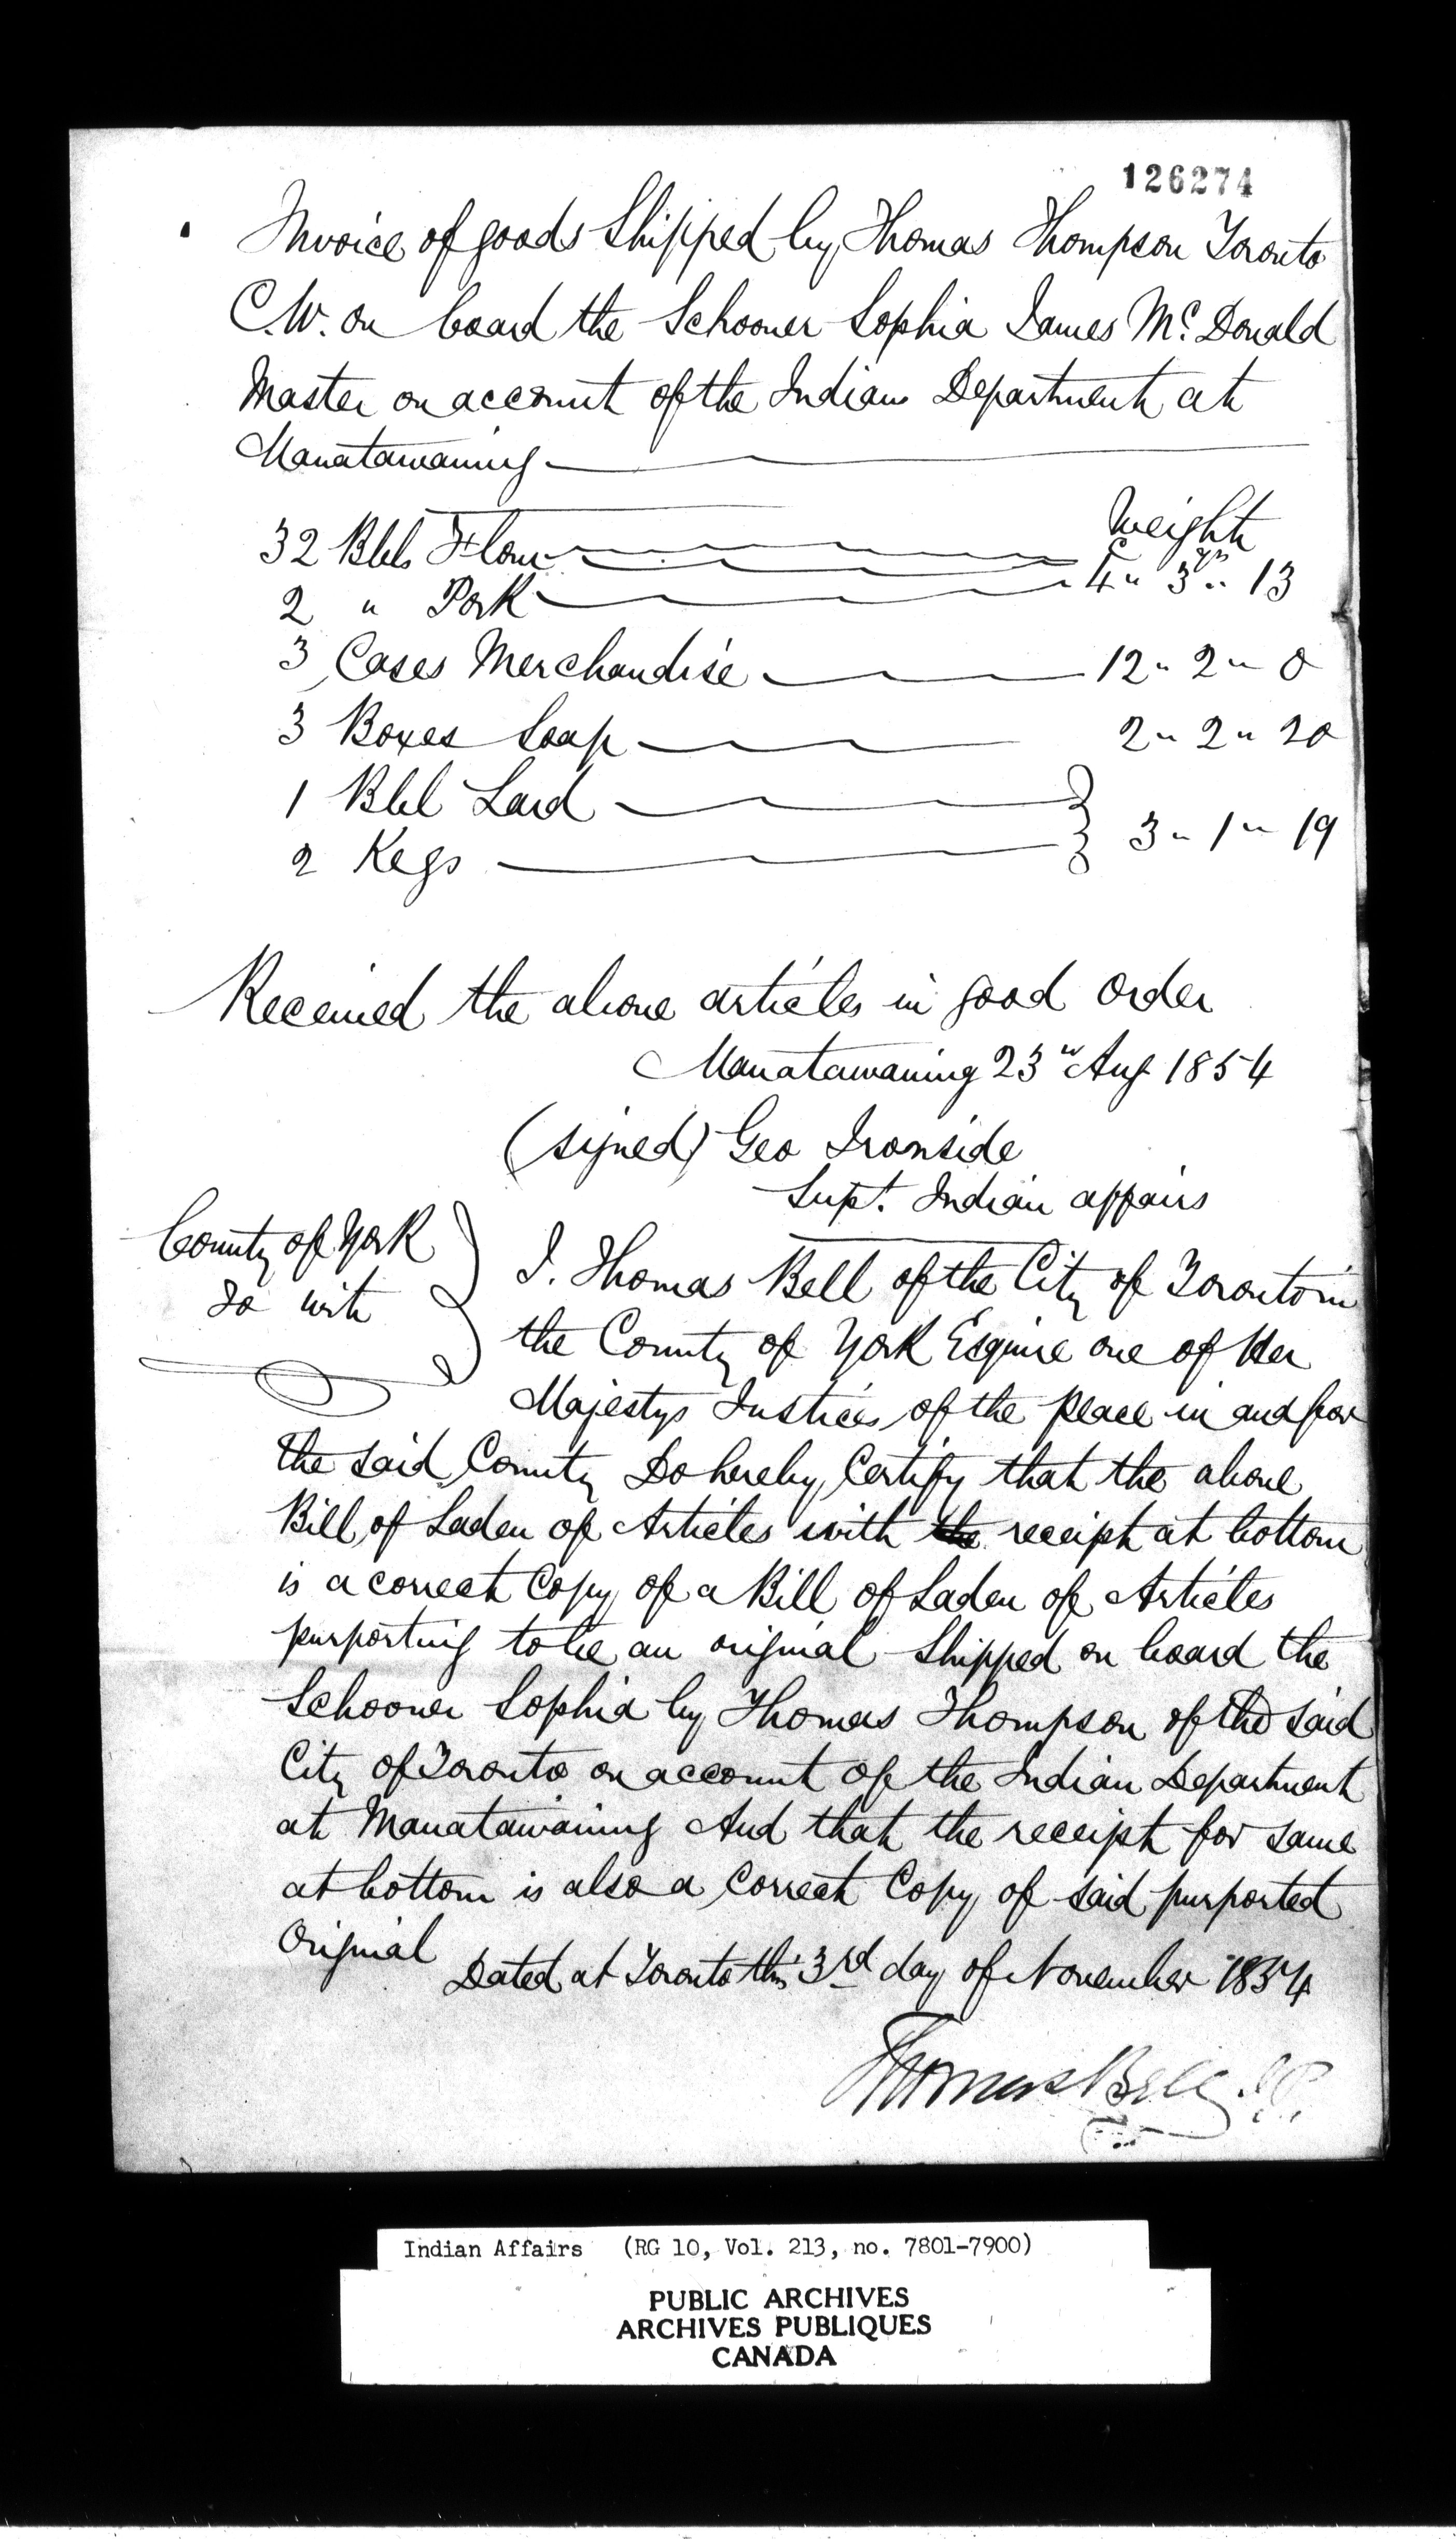 126274
Invoice of goods Shipped by Thomas Thompson Toronto
C.W. on board the Schooner Sophia James McDonald
Master on account of the Indian Department at
Manatawaning
Weight
32 Bbls Flour
C qrs
2 " Pork 4 " 3 " 13
3 Cases Merchandise 12 " 2 " 0
3 Boxes Soap 2 " 2 " 20
1 Bbl Lard
2 Kegs 3 " 1 " 19
Received the above articles in good order
Manatawaning 23rd Aug 1854
(signed) Geo Ironside
Supt. Indian affairs
County of York
To wit
I. Thomas Bell of the City of Toronto in
the County of York Esquire one of Her
Majestys Justices of the peace in and for
the said County Do hereby Certify that the above
Bill of Laden of Articles with the receipt at bottom
is a correct Copy of a Bill of Laden of Articles
purporting to be an original Shipped on board the
Schooner Sophia by Thomas Thompson of the said
City of Toronto on account of the Indian Department
at Manatawaning And that the receipt for same
at bottom is also a Correct Copy of said purported
Original
Dated at Toronto this 3rd day of November 1854
Thomas Bell J.P.
Indian Affairs (RG 10, Vol. 213, no. 7801-7900)
PUBLIC ARCHIVES
ARCHIVES PUBLIQUES
CANADA